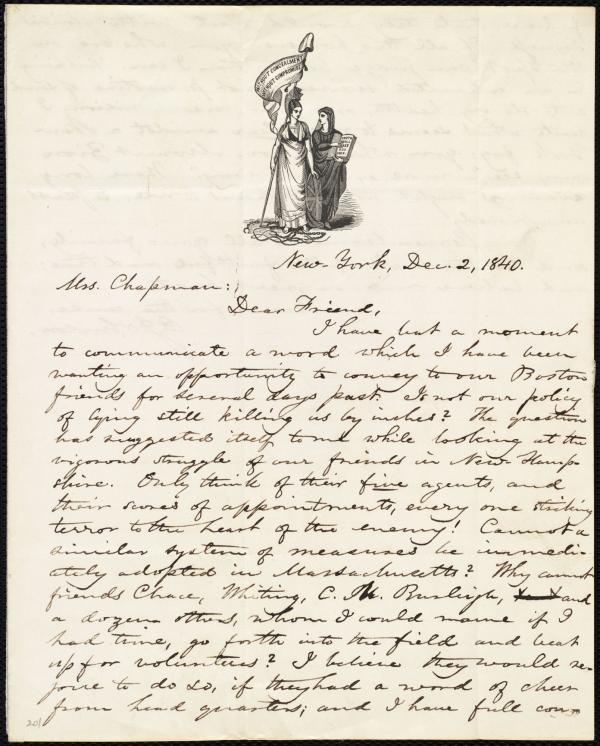 WITHOUT CONCEALMENT
WITHOUT COMPROMISE
New-York, Dec. 2, 1840.
Mrs. Chapman:
Dear Friend,
I have but a moment
to communicate a word which I have been
wanting an opportunity to convey to our Boston
friends for several days past. Is not our policy
of lying still killing us by inches? The question
has suggested itself to me while looking at the
vigorous struggle of our friends in New-Hamp-
shire. Only think of their five agents, and
their scores of appointments, every one striking
terror to the heart of the enemy! Cannot a
similar system of measures be immedi-
ately adopted in Massachusetts? Why cannot
friends Chace, Whiting, C. M. Burleigh, and
a dozen others, whom I could name if I
had time, go forth into the field and beat
up for volunteers? I believe they would re-
joice to do so, if they had a word of cheer
from head quarters; and I have full con-
201